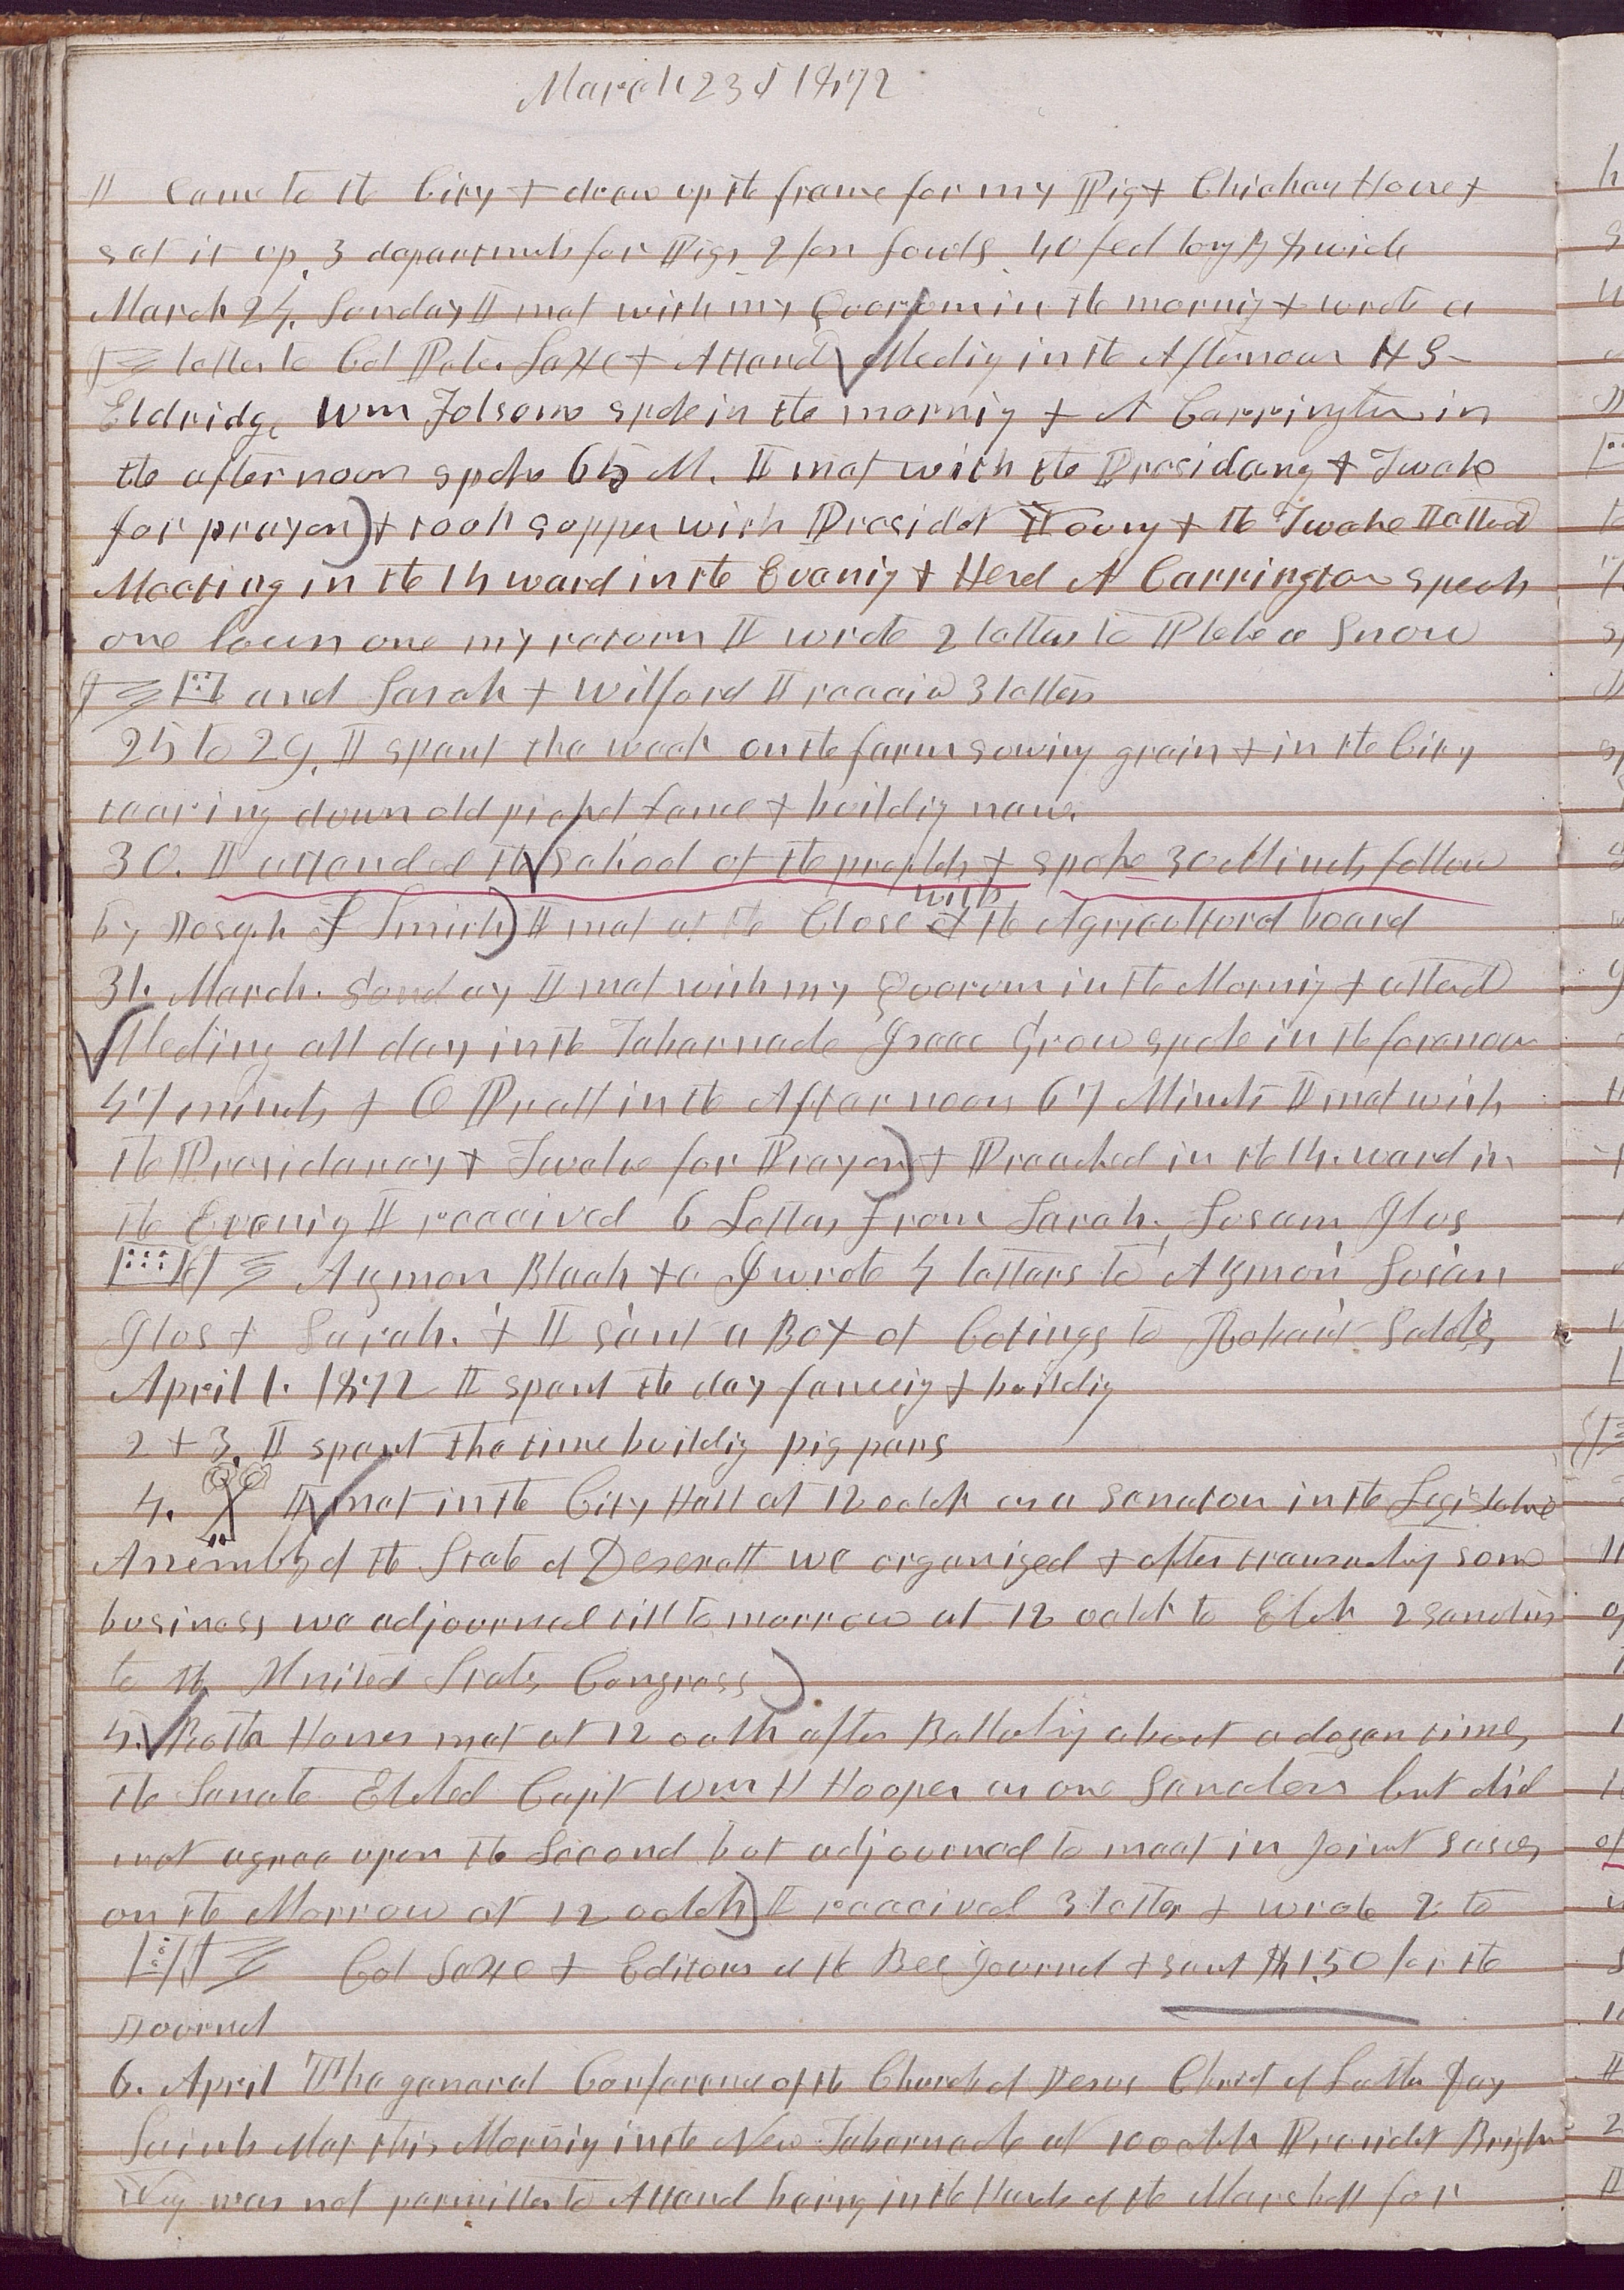 March 23d 1872
I Came to the City & drew up the frame for my Pig & Chicken House &
set it up. 3 departments for Pigs 2 for fowls 40 feet long wide
March 24. Sunday I met with my Quorum in the morning & wrote a
letter to Col Peter Saxe & Attend Meeting in the Afternoon H S
Eldridge Wm Folsom spoke in the morning & A Carrington in
the afternoon spoke 65 M. I met with the Presidency & Twelve
for prayer) & took supper with President Young & the Twelve I attend
Meeting in the 14 ward in the Evening & Herd A Carrington speak
one hour one my return I wrote 2 letters to Phebe a Snow
and Sarah & Wilford I receiv 3 letters
25 to 29. I spent the week on the farm sowing grain & in the City
tearing down old picket fence & building new.
30. I attended the school of the prophets & spoke 30 Minuts follow
by Joseph F Smith) I met at the Close with of the Agricultural board
31. March. Sunday I met with my Quorum in the Morning & attend
Meeting all day in the Tabernacle Isaac Grow spoke in the forenoon
47 minuts & O Pratt in the Afternoon 67 Minuts I met with
the Presidency & Twelve for Prayer) & Preached in the 14. ward in
the Evening I received 6 Letters from Sarah, Susan, Glos
Azmon Black & c I wrote 4 letters to Azmon, Susan
Glos & Sarah. & I sent a Box of Cutings to Robert
April 1. 1872 I spent the day fencing & building
2 & 3. I spent the time building pig pens
4. I met in the City Hall at 12 oclok as a senator in the Legislative
Assembly of the State of Deserett we organized & after transacting some
business we adjourned till to morrow at 12 oclok to Elect 2 senators
to the United States Congress)
5. Both Houses met at 12 oclok after Balloting about a dozen times
the Senate Elected Capt Wm H Hooper as one Senators but did
not agree upon the Second but adjourned to meet in Joint
on the Morrow at 12 oclok) I received 3 letter & wrote 2 to
Col Saxe & Editors of the Bee Journal & sent $1.50 for the
Journal
6. April The general Conference of the Church of Jesus Christ of Latter Day
Saints Met this Morning in the New Tabernacle at 10 oclok President Brigham
Young was not permitted to Attend being in the Hands of the Marshall for